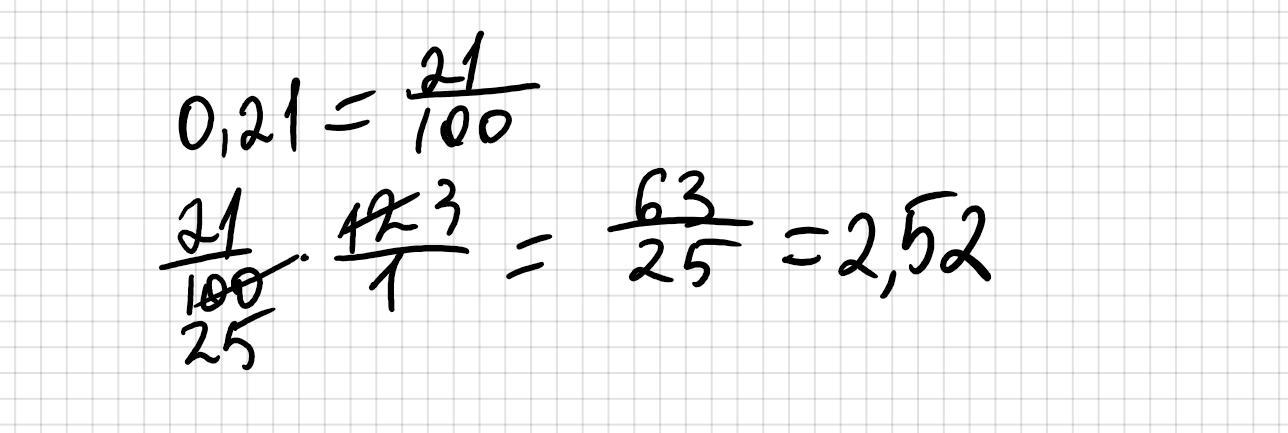 0,21 = 21/100
21/100 25 · 12 3/1 = 63/25 = 2,52